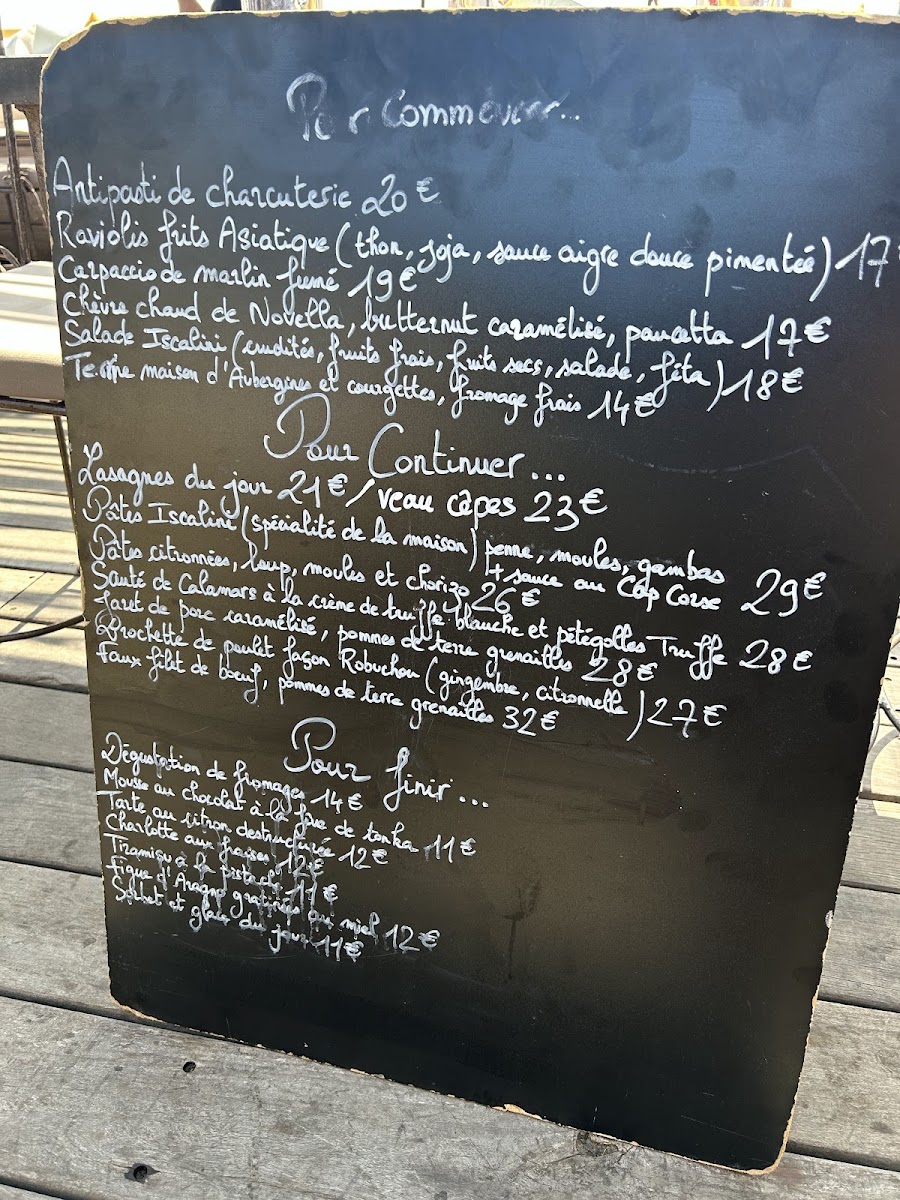 Antipasti de charcuterie 20€
Raviolis frits Asiatique (thon, soja, sauce aigre douce pimentée) 17
Carpaccio de marlin fumé 19€
Chèvre chaud de Novella, butternut caramélisé, pancetta 17€
Salade Iscalini (crudités, fruits frais, fruits secs, salade, féta) 18€
Terrine maison d'Aubergines et courgettes, fromage frais 14€
Pour Continuer...
Lasagnes du jour 21€ / veau cêpes 23€
Pâtes Iscaline (spécialité de la maison) penne, moules, gambas
+ sauce au Cap Corse 29€
Pâtes citronnées, loup, moules et chorizo 26€
Sauté de Calamars à la crème de truffe blanche et pétégolles Truffe 28€
Jaret de porc caramélisé, pommes de terre grenailles 28€
Brochette de poulet façon Robuchon (gingembre, citronnelle) 27€
Faux filet de boeuf, pommes de terre grenailles 32€
Pour finir...
Dégustation de fromages 14€
Mousse au chocolat à la fève de tonka 11€
Tarte au citron destructurée 12€
Charlotte aux fraises 12€
Tiramisu à la pistache 11€
figue d'Aragno gratinées au miel 12€
Sorbet et glace du jour 11€